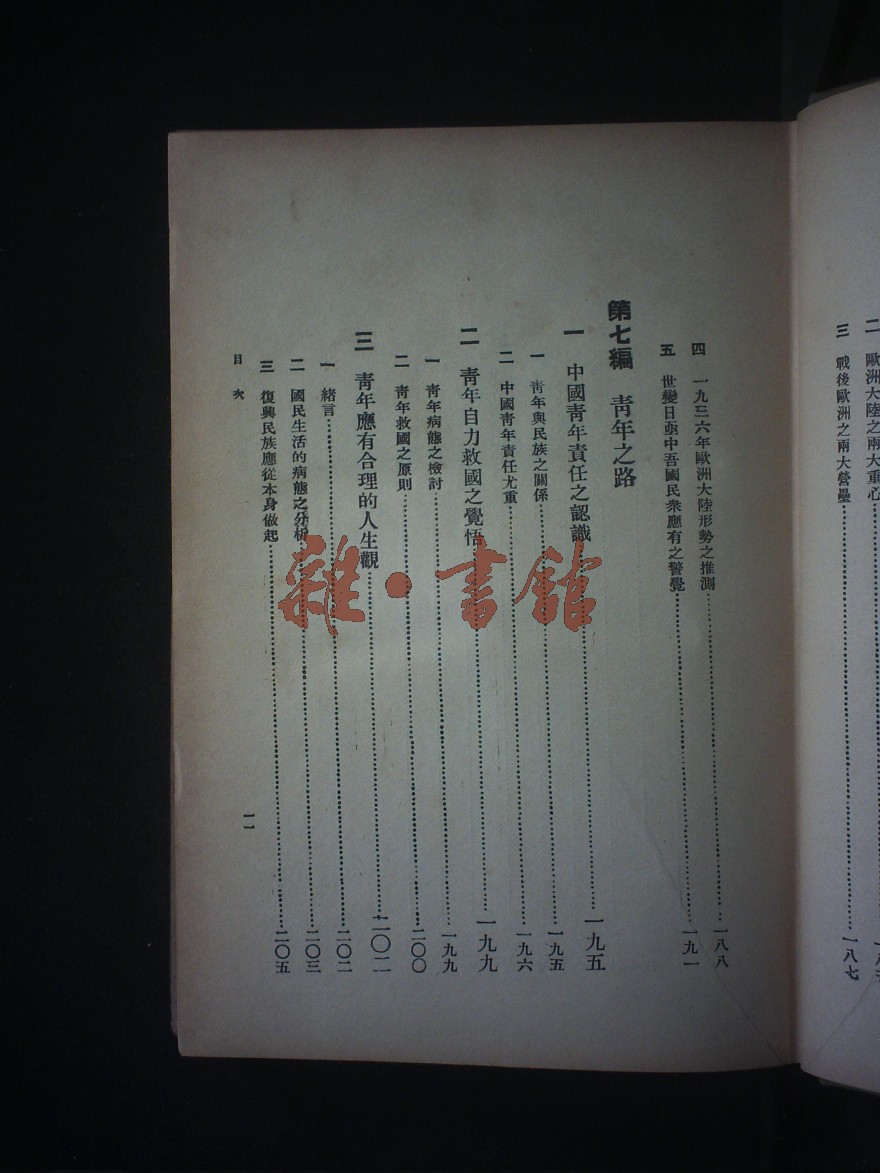 二 歐洲大陸之兩大重心
三 戰後歐洲之兩大營壘……一八七
四 一九三六年歐洲大陸形勢之推測……一八八
五 世變日亟中吾國民衆應有之警覺……一九一
第七編 靑年之路
一 中國靑年責任之認識……一九五
一 靑年與民族之關係……一九五
二 中國靑年責任尤重……一九六
二 靑年自力救國之覺悟……一九九
一 靑年病態之檢討……一九九
二 靑年救國之原則……二〇〇
三 靑年應有合理的人生觀……二〇二
一 緒言……二〇二
二 國民生活的病態之分析……二〇三
三 復興民族應從本身做起……二〇五
目次
一一
雜·書館